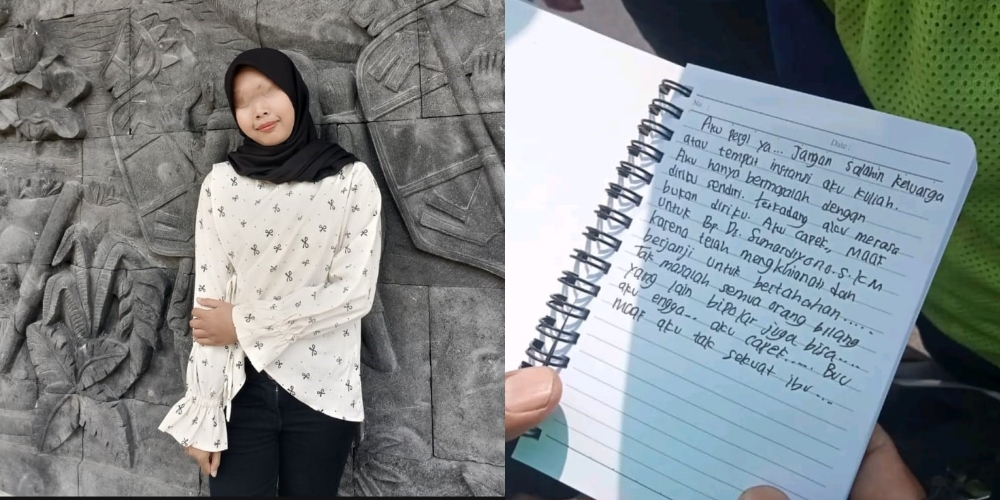 No :
Date :
Aku pergi ya... Jangan salahin keluarga
atau tempat instansi aku kuliah.
Aku hanya bermasalah dengan
diriku sendiri. terkadang aku merasa
bukan diriku. Aku capek, Maaf
untuk Bp. Dr. Sumardiyono. S.K.M
karena telah mengkhianati dan
berjanji untuk bertahahan.....
Tak masalah semua orang bilang
yang lain bipolar juga bisa....
aku engga... aku capek..... Buu
Maaf aku tak sekuat ibu....